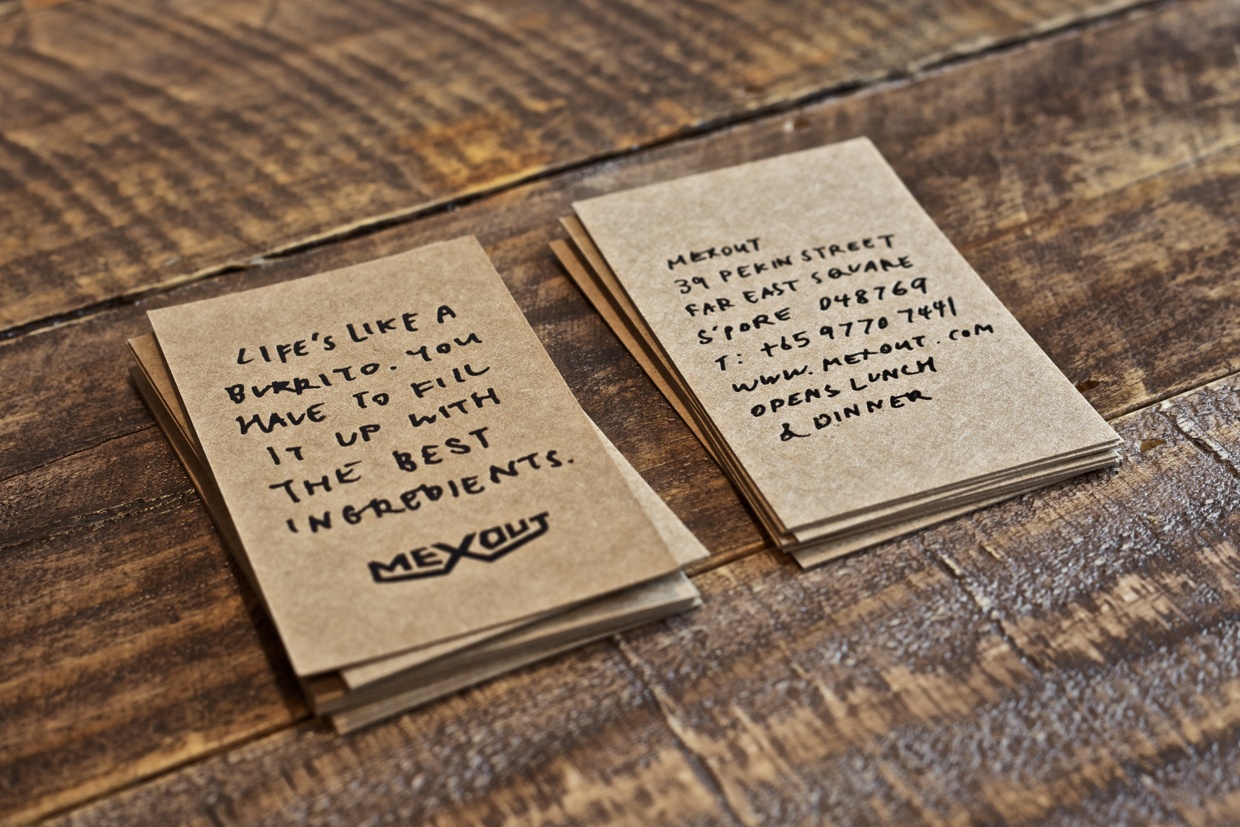 LIFE'S LIKE A
BURRITO. YOU
HAVE TO FILL
IT UP WITH
THE BEST
INGREDIENTS.
MEXOUT
MEXOUT
39 PEKIN STREET
FAR EAST SQUARE
S'PORE 048769
T: +65 9770 7441
WWW.MEXOUT.COM
OPENS LUNCH
& DINNER